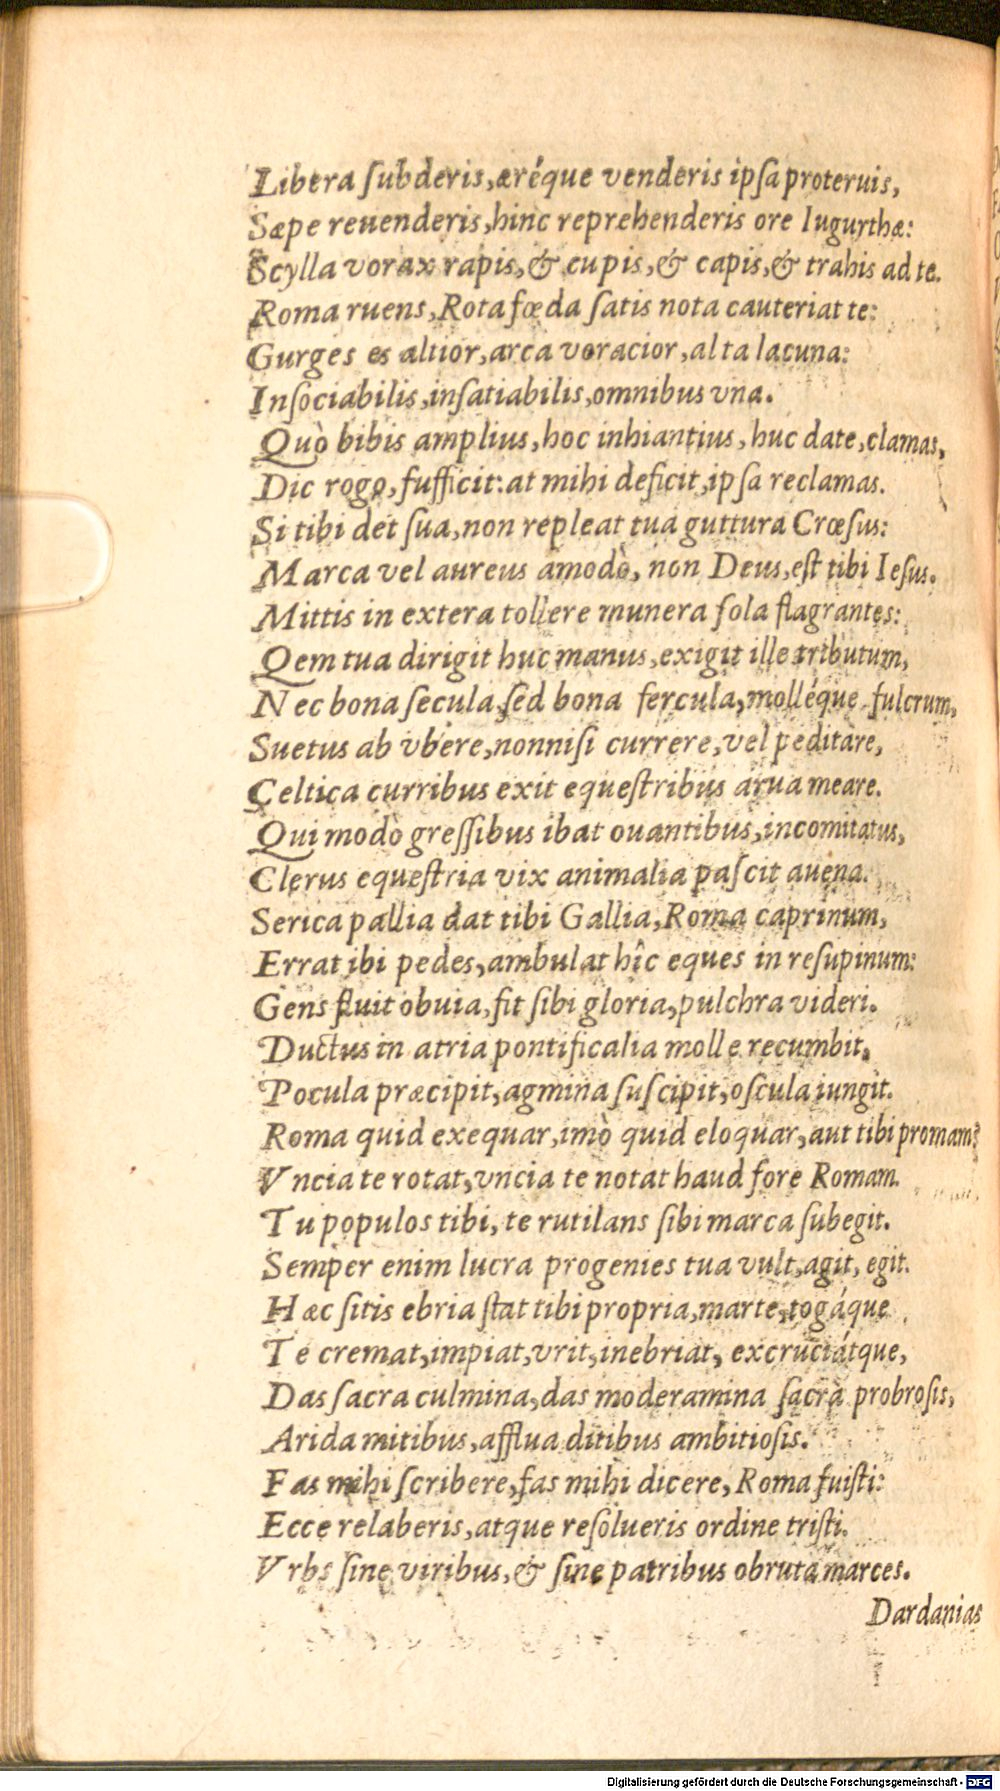 Libera ſubderis, æréque venderis ipſa proteruis,
Sæpe reuenderis, hinc reprehenderis ore Iugurthæ:
Scylla vorax rapis, & cupis, & capis, & trahis ad te.
Roma ruens, Rota fœda ſatis nota cauteriat te:
Gurges es altior, arca voracior, alta lacuna:
Inſociabilis, inſatiabilis, omnibus vna.
Quò bibis amplius, hoc inhiantius, huc date, clamas,
Dic rogo, ſufficit: at mihi deficit, ipſa reclamas.
Si tibi det ſua, non repleat tua guttura Crœſus:
Marca vel aureus amodò, non Deus, eſt tibi Ieſus.
Mittis in extera tollere munera ſola flagrantes:
Qem tua dirigit huc manus, exigit ille tributum,
Nec bona ſecula, ſed bona fercula, molléque fulcrum,
Suetus ab vbere, nonniſi currere, vel peditare,
Celtica curribus exit equeſtribus arua meare.
Qui modò greſſibus ibat ouantibus, incomitatus,
Clerus equeſtria vix animalia paſcit auena.
Serica pallia dat tibi Gallia, Roma caprinum,
Errat ibi pedes, ambulat hîc eques in reſupinum:
Gens fluit obuia, fit ſibi gloria, pulchra videri.
Ductus in atria pontificalia molle recumbit,
Pocula præcipit, agmina ſuſcipit, oſcula iungit.
Roma quid exequar, imò quid eloquar, aut tibi promam?
Vncia te rotat, vncia te notat haud fore Romam.
Tu populos tibi, te rutilans ſibi marca ſubegit.
Semper enim lucra progenies tua vult, agit, egit.
Hæc ſitis ebria ſtat tibi propria, marte, togáque
Te cremat, impiat, vrit, inebriat, excruciátque,
Das ſacra culmina, das moderamina ſacra probroſis,
Arida mitibus, afflua ditibus ambitioſis.
Fas mihi ſcribere, fas mihi dicere, Roma fuiſti:
Ecce relaberis, atque reſolueris ordine triſti.
Vrbs ſine viribus, & ſine patribus obruta marces.
Dardanias
Digitalisierung gefördert durch die Deutsche Forschungsgemeinschaft - DFG